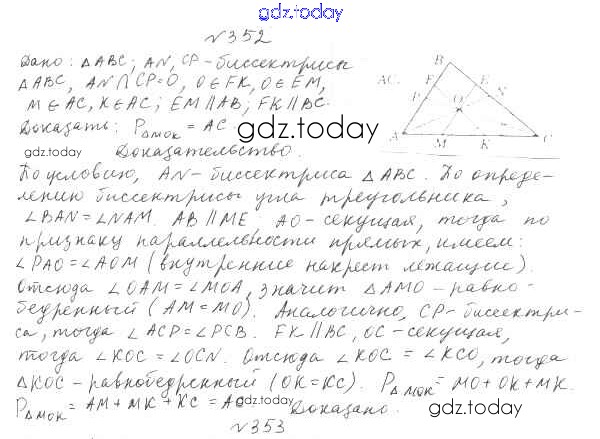 gdz.today
№352
Дано: △ABC; AN, CP - биссектрисы
△ABC, AN∩CP=O, O∈FK, O∈EM,
M∈AC, K∈AC; EM∥AB; FK∥BC.
AC.
Доказать: P△MOK = AC.
gdz.today
gdz.today
B
F
E
P
N
O
A
M
K
C
Доказательство.
По условию, AN - биссектриса △ABC. По опреде-
лению биссектрисы угла треугольника,
∠BAN=∠NAM. AB∥ME AO - секущая, тогда по
признаку параллельности прямых, имеем:
∠PAO=∠AOM (внутренние накрест лежащие).
Отсюда ∠OAM=∠MOA, значит △AMO - равно-
бедренный (AM=MO). Аналогично, CP - биссектри-
са, тогда ∠ACP=∠PCB. FK∥BC, OC - секущая,
тогда ∠KOC=∠OCN. Отсюда ∠KOC = ∠KCO, тогда
△KOC - равнобедренный (OK=KC). P△MOK = MO+OK+MK.
P△MOK = AM+MK+KC = AC Доказано.
gdz.today
gdz.today
№353